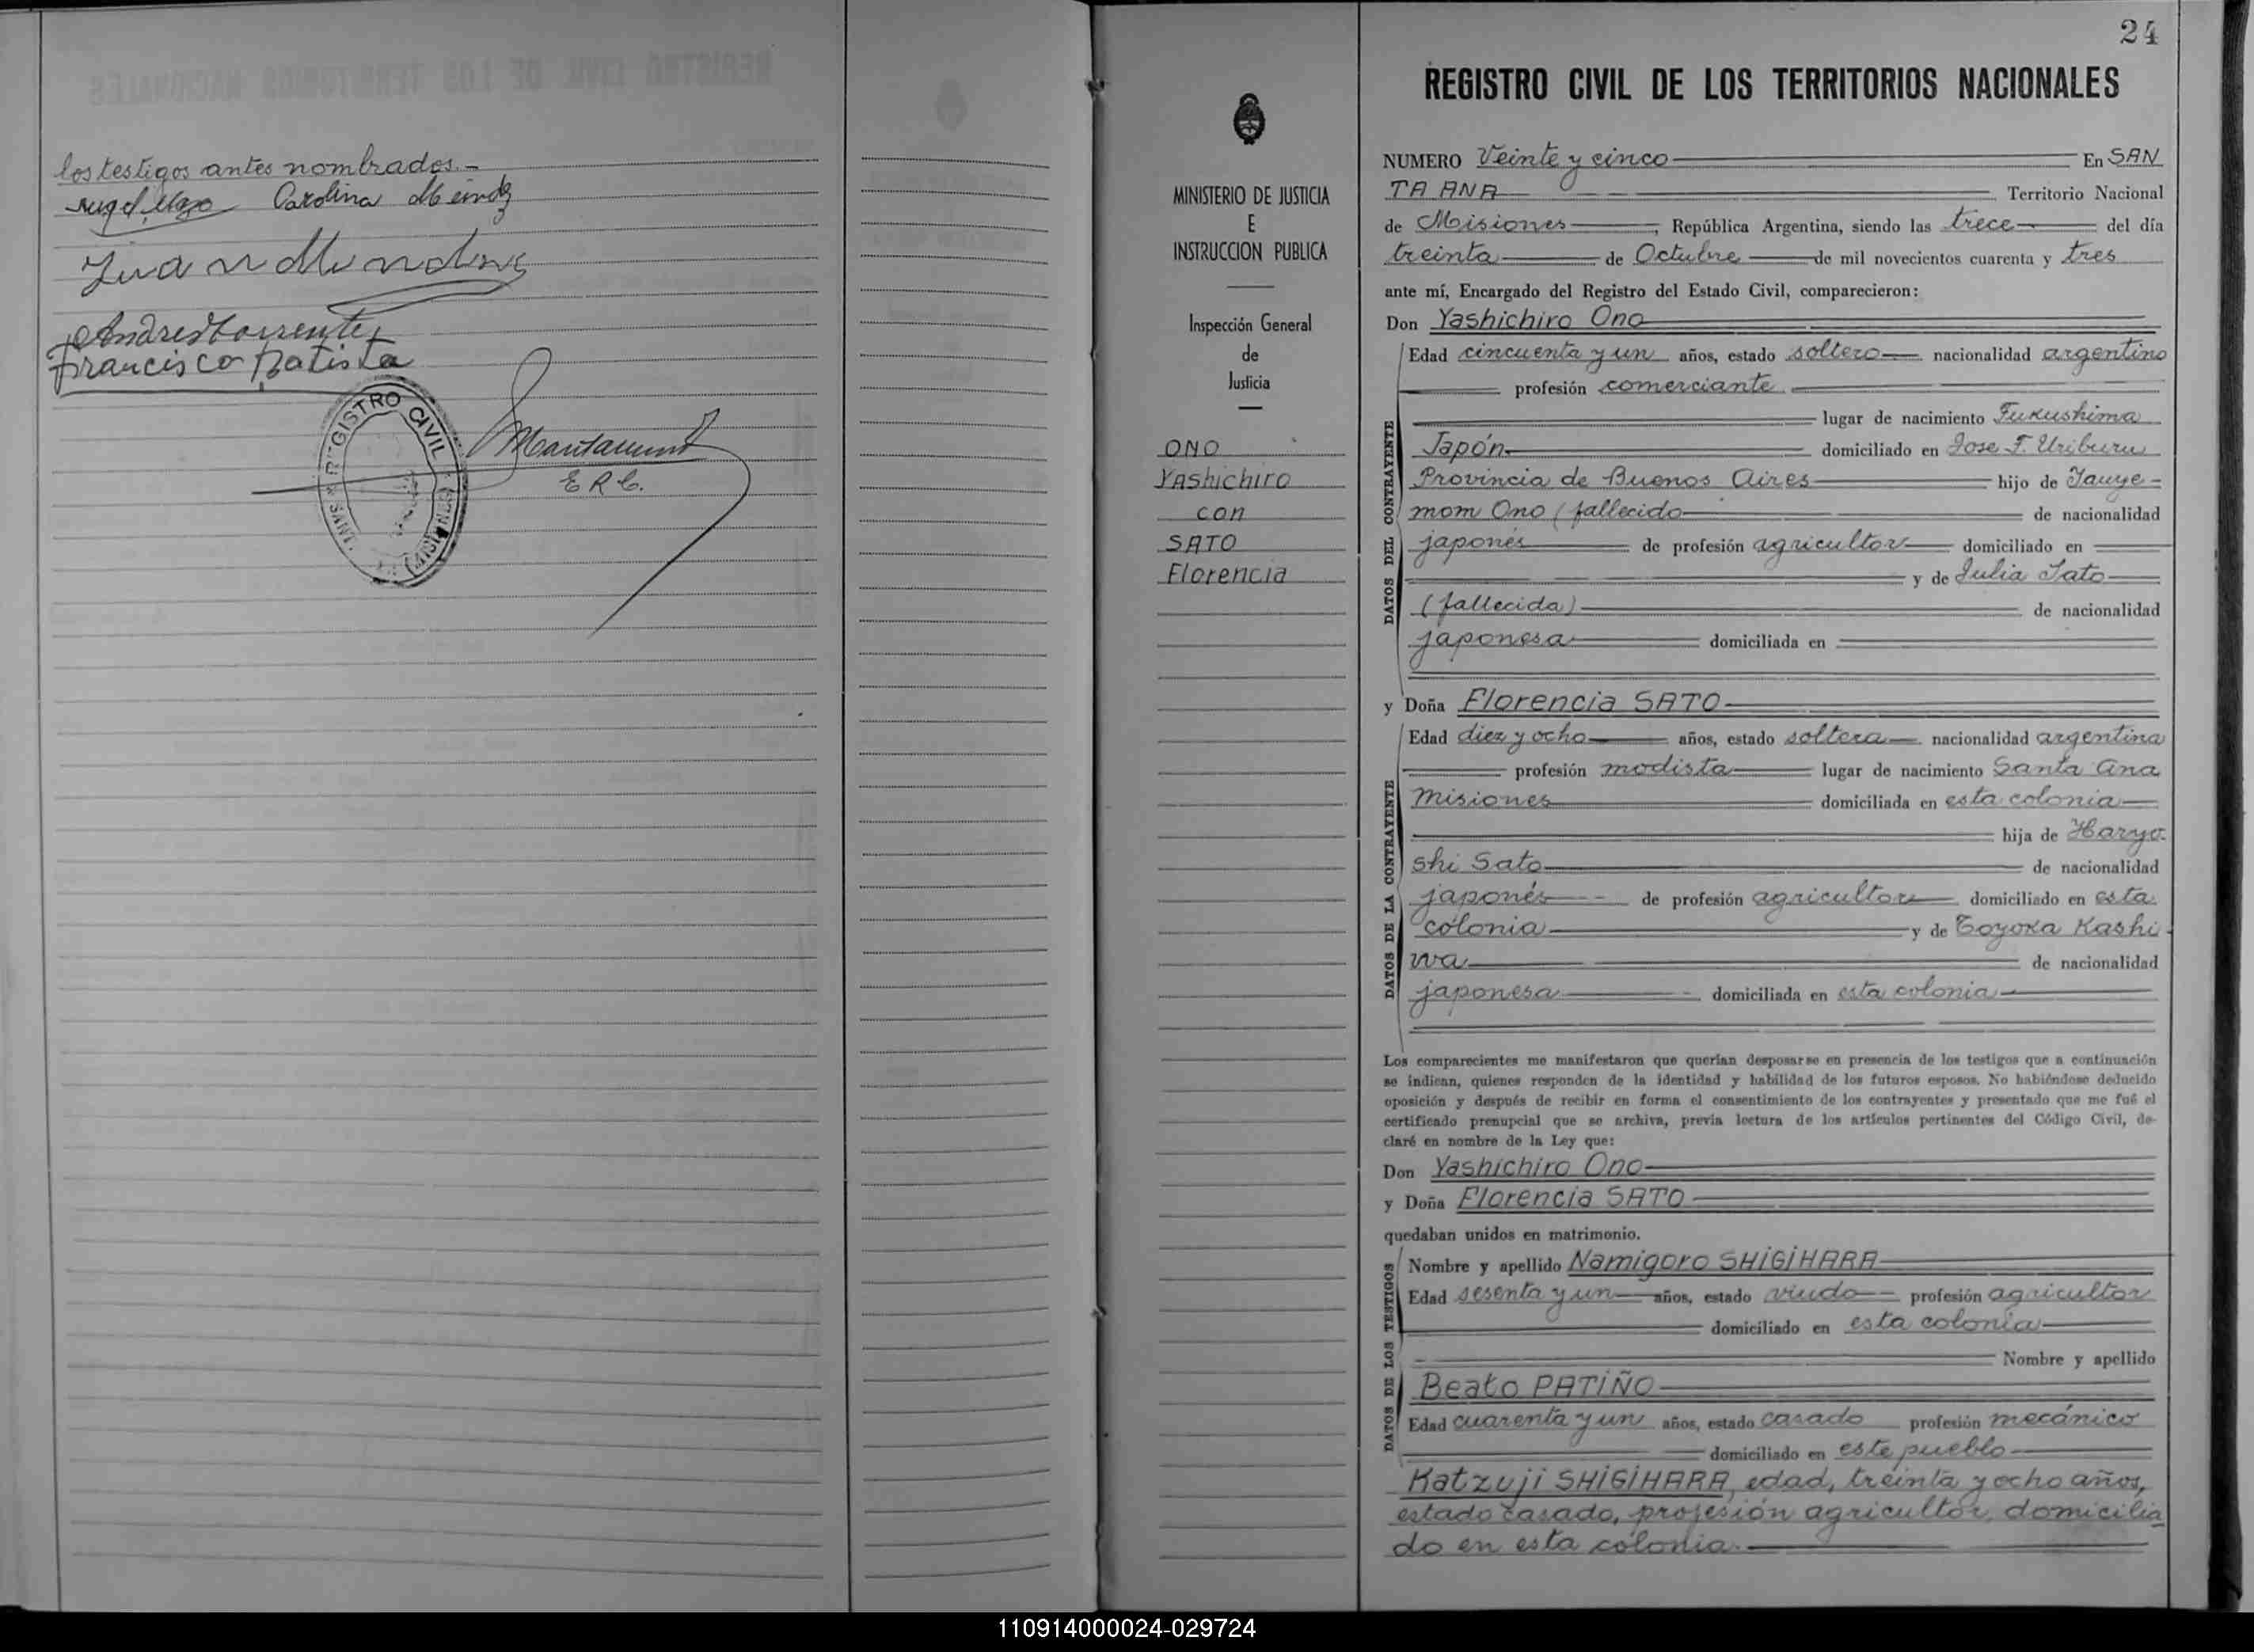 los testigos antes nombrados.-
Carolina
Juan
Andres Torrente
Francisco Batista
REGISTRO CIVIL
E R C.
24
REGISTRO CIVIL DE LOS TERRITORIOS NACIONALES
MINISTERIO DE JUSTICIA
E
INSTRUCCION PUBLICA
Inspección General
de
Justicia
ONO
Yashichiro
con
SATO
Florencia
NUMERO Veinte y cinco En SAN
TA ANA Territorio Nacional
de Misiones, República Argentina, siendo las trece del día
treinta de Octubre de mil novecientos cuarenta y tres
ante mí, Encargado del Registro del Estado Civil, comparecieron:
Don Yashichiro Ono
DATOS DEL CONTRAYENTE
Edad cincuenta y un años, estado soltero nacionalidad argentino
profesión comerciante
lugar de nacimiento Fukushima
Japón domiciliado en Jose F. Uriburu
Provincia de Buenos Aires hijo de
mom Ono (fallecido de nacionalidad
japonés de profesión agricultor domiciliado en
y de Julia Sato
(fallecida) de nacionalidad
japonesa domiciliada en
y Doña Florencia SATO
DATOS DE LA CONTRAYENTE
Edad diez y ocho años, estado soltera nacionalidad argentina
profesión modista lugar de nacimiento Santa Ana
Misiones domiciliada en esta colonia
hija de Haryo-
shi Sato de nacionalidad
japonés de profesión agricultor domiciliado en esta
colonia y de Toyoka Kashi-
wa de nacionalidad
japonesa domiciliada en esta colonia
Los comparecientes me manifestaron que querían desposarse en presencia de los testigos que a continuación
se indican, quienes responden de la identidad y habilidad de los futuros esposos. No habiéndose deducido
oposición y después de recibir en forma el consentimiento de los contrayentes y presentado que me fué el
certificado prenupcial que se archiva, previa lectura de los artículos pertinentes del Código Civil, de-
claré en nombre de la Ley que:
Don Yashichiro Ono
y Doña Florencia SATO
quedaban unidos en matrimonio.
DATOS DE LOS TESTIGOS
Nombre y apellido Namigoro SHIGIHARA
Edad sesenta y un años, estado viudo profesión agricultor
domiciliado en esta colonia
Nombre y apellido
Beato PATIÑO
Edad cuarenta y un años, estado casado profesión mecánico
domiciliado en este pueblo
Katzuji SHIGIHARA, edad, treinta y ocho años,
estado casado, profesión agricultor, domicilia
do en esta colonia.
110914000024-029724